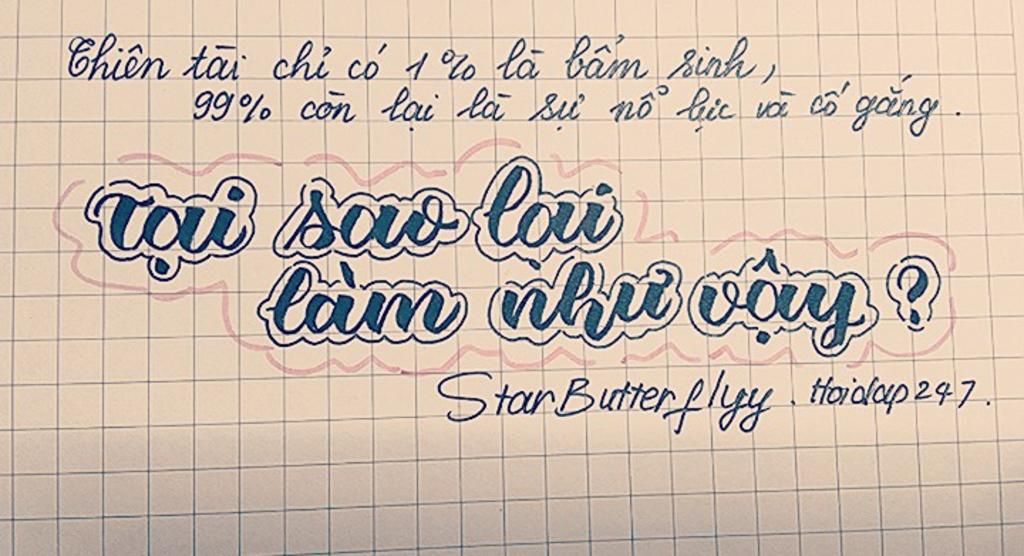 Thiên tài chỉ có 1% là bẩm sinh,
99% còn lại là sự nổ lực và cố gắng.
Tại sao lại
làm như vậy?
StarButterflyy. Hoidap247.